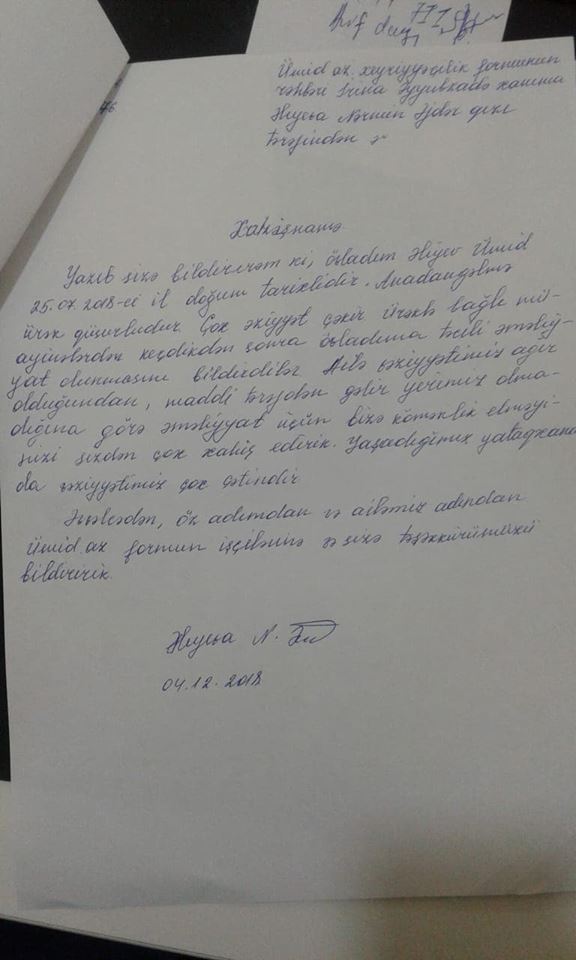 76.
Ümid.az xeyriyyəçilik formunun
rəhbəri İrina Əyyubzadə xanıma
Nərmin Əjdər qızı
tərəfindən ə
Xahişnamə
Yazıb sizə bildirirəm ki, övladım Əliyev Ümid
25.07.2018-ci il doğum tarixlidir. Anadangəlmə
ürək qüsurludur. Çox əziyyət çəkir ürəklə bağlı mü-
ayinələrdən keçdikdən sonra övladıma təcili əməliy-
yat olunmasını bildirdilər. Ailə vəziyyətimiz ağır
olduğundan, maddi tərəfdən gəlir yerimiz olma-
dığına görə əməliyyat üçün bizə köməklik etməyi-
nizi sizdən çox xahiş edirik. Yaşadığımız yataqxana
da vəziyyətimiz çox çətindir
Əvvəlcədən, öz adımdan və ailəmiz adından
Ümid.az formun işçilərinə və sizə təşəkkürümüzü
bildiririk.
N.
04.12.2018